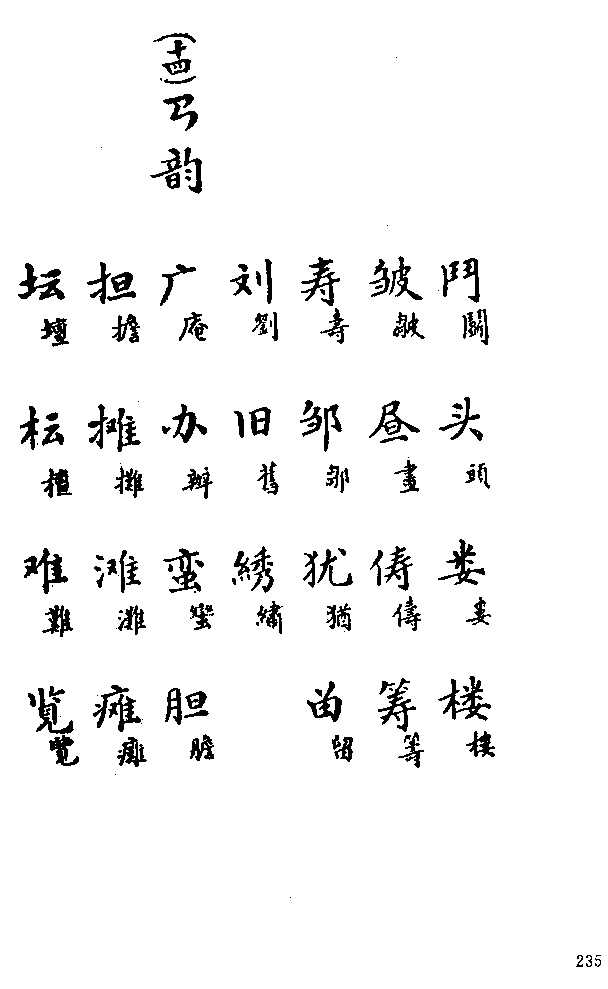 鬥 鬪 头 頭 娄 婁 楼 樓
皱 皺 昼 晝 俦 儔 筹 籌
寿 壽 邹 鄒 犹 猶 畄 留
刘 劉 旧 舊 綉 繡
(十四)ㄢ韵
广 庵 办 辦 蛮 蠻 胆 膽
担 擔 摊 攤 滩 灘 瘫 癱
坛 壇 枟 檀 难 難 览 覽
235